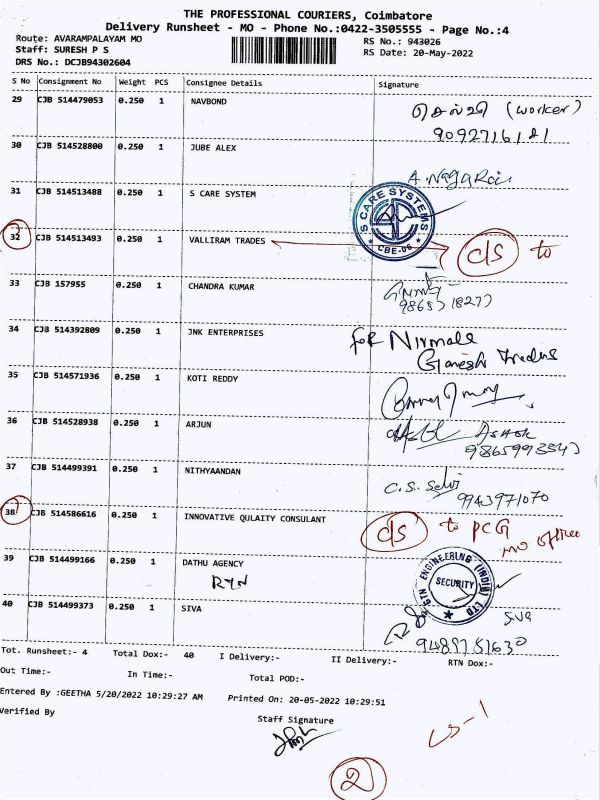 THE PROFESSIONAL COURIERS, Coimbatore
Delivery Runsheet - MO - Phone No.:0422-3505555 - Page No.:4
Route: AVARAMPALAYAM MO
RS No.: 943026
Staff: SURESH P S
RS Date: 20-May-2022
DRS No.: DCJB94302604
S No Consignment No Weight PCS Consignee Details Signature
29 CJB 514479053 0.250 1 NAVBOND
செல்வி (worker)
30 CJB 514528800 0.250 1 JUBE ALEX
A. NagaRaj
31 CJB 514513488 0.250 1 S CARE SYSTEM
S CARE SYSTEMS
★ CBE-06 ★
32 CJB 514513493 0.250 1 VALLIRAM TRADES c/s to
33 CJB 157955 0.250 1 CHANDRA KUMAR
34 CJB 514392809 0.250 1 JNK ENTERPRISES
for Nirmala
Ganesh Traders
35 CJB 514571936 0.250 1 KOTI REDDY
36 CJB 514528938 0.250 1 ARJUN
Ashok
37 CJB 514499391 0.250 1 NITHYAANDAN
C.S. Selvi
9943971070
38 CJB 514586616 0.250 1 INNOVATIVE QULAITY CONSULANT
c/s to PCG
MO office
39 CJB 514499166 0.250 1 DATHU AGENCY
RTN
GTN ENGINEERING (INDIA) LTD
SECURITY
40 CJB 514499373 0.250 1 SIVA
Siva
9489751630
Tot. Runsheet:- 4 Total Dox:- 40 I Delivery:- II Delivery:- RTN Dox:-
Out Time:- In Time:- Total POD:-
Entered By :GEETHA 5/20/2022 10:29:27 AM Printed On: 20-05-2022 10:29:51
Verified By
Staff Signature
cs-1
2